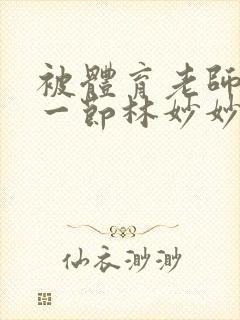 被體育老師
一節林妙妙
仙衣渺渺